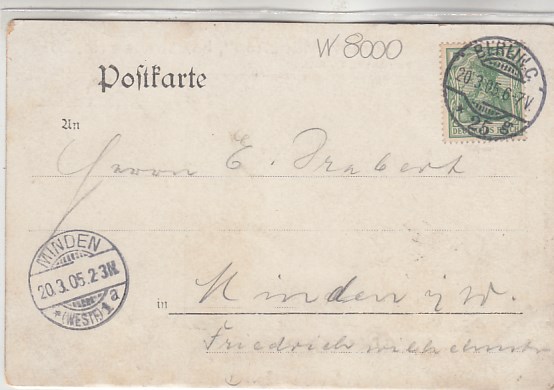 W 8000
Postkarte
BERLIN.C.
20.3.05.6-7V.
* 25 s
DEUTSCHES REICH
An
Herrn E. Drabert
MINDEN
20.3.05.2-3N.
*(WESTF) 1 a
in Minden i/W.
Friedrich wilhelmstr